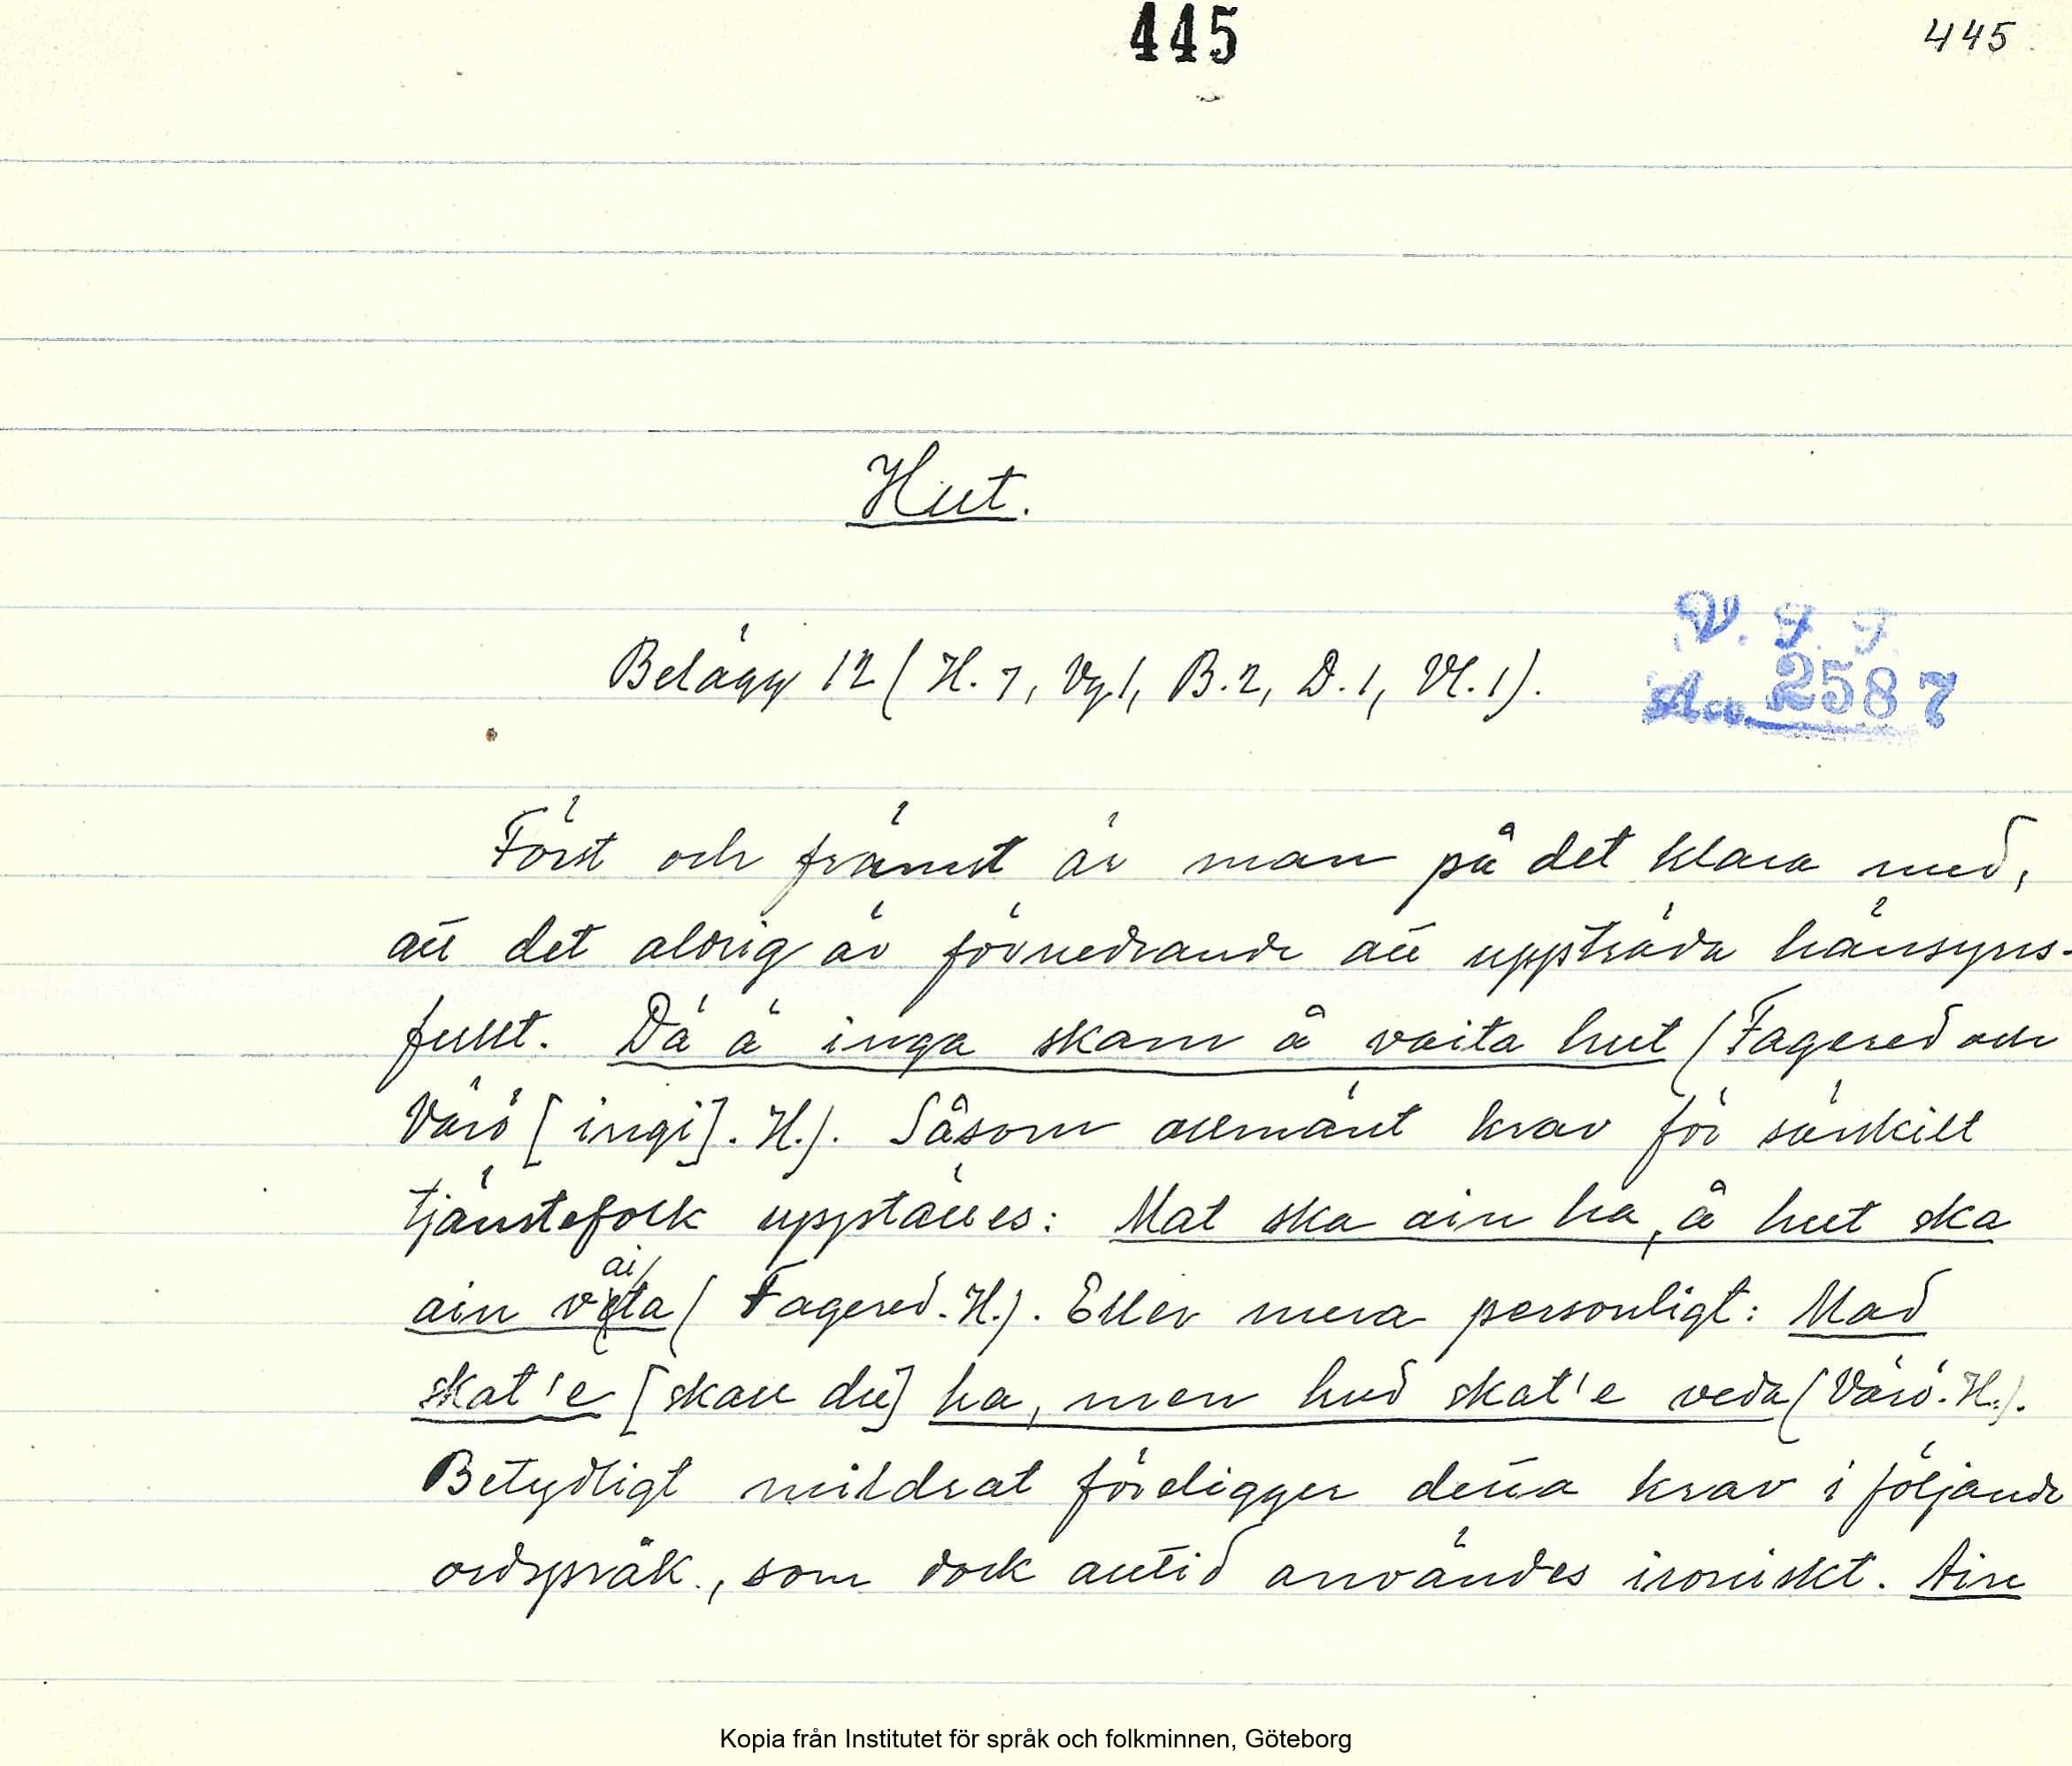 445
445.
Hut.
Belägg 12 (H. 7, Vg. 1, B. 2, D. 1, Vl. 1).
V. F. F.
Acc. 2587
Först och främst är man på det klara med,
att det aldrig är förnedrande att uppträda hänsyns-
fullt. Dä ä inga skam å vaita hut (Fagered och
Värö [ingi]. H.). Såsom allmänt krav för särskilt
tjänstefolk uppställes: Mat ska ain ha, å hut ska
ain vaita (Fagered. H.). Eller mera personligt: Mad
skat'e [skall du] ha, men hud skat'e veda (Värö. H.).
Betydligt mildrat föreligger denna krav i följande
ordspråk, som dock alltid användes ironiskt. Ain
Kopia från Institutet för språk och folkminnen, Göteborg